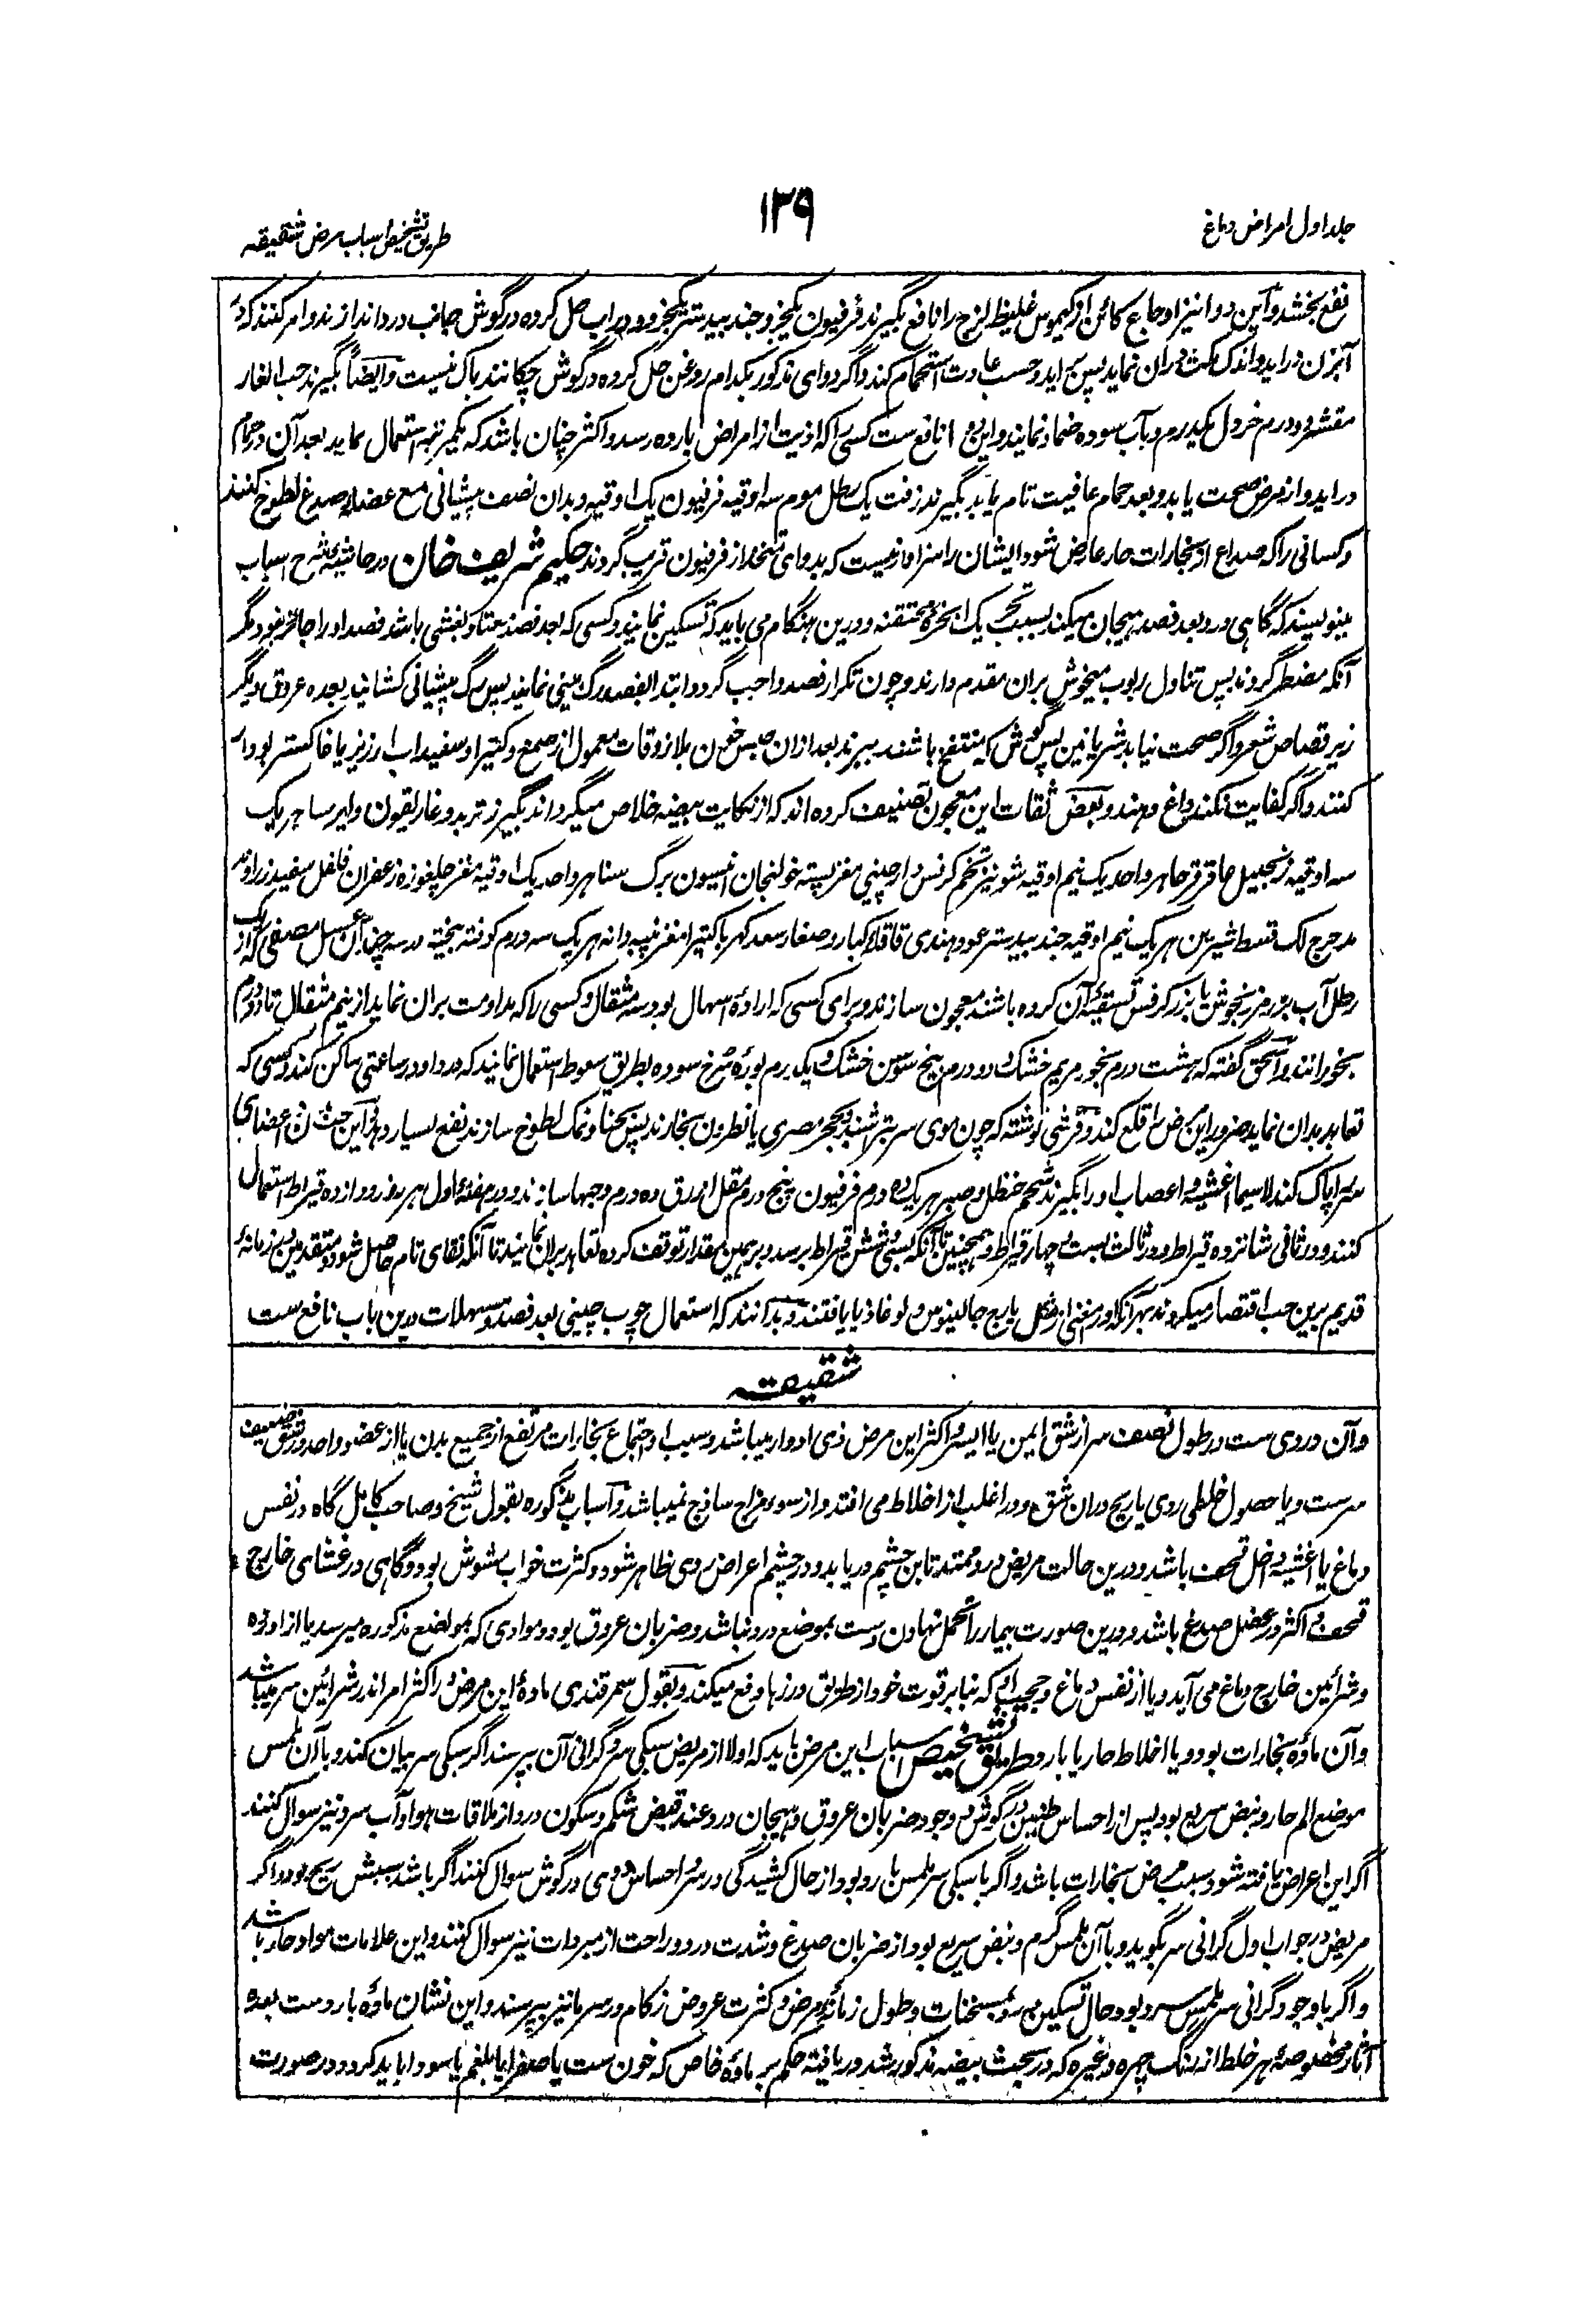 جلد اول امراض دماغ
۱۳۹
طریق تشخیص اسباب مرض شقیقه
نفع بخشد و این دوا نیز اوجاع کائن از کیموس غلیظ لزج را نافع بگیرند فرفیون یکجزو جند بیدستر یکجزو و در آب حل کرده در گوش جانب درد اندازند و امر کنند که در
آبزن در آید و اندک مکث دران نماید پس برآید و حسب عادت استحمام کند و اگر دوای مذکور بکدام روغن حل کرده در گوش چکانند باک نیست و ایضاً بگیرند حب الغار
مقشر دو درم خردل یکدرم و بآب سوده ضماد نمایند و این دوا نافع ست کسی را که اذیت از امراض بارده رسد و اکثر چنان باشد که یکمرتبه استعمال نماید بعد آن در حمام
در آید و از مرض صحت یابد و بعد حمام عافیت تام یابد بگیرند زفت یک رطل موم سه اوقیه فرفیون یک اوقیه و بدان نصف پیشانی مع عضلهٔ صدغ لطوخ کنند
و کسانی را که صداع از بخارات حار عارض شود ایشان را سزاوار نیست که بدوای متخذ از فرفیون قریب گردند حکیم شریف خان در حاشیهٔ شرح اسباب
مینویسند که گاهی درد بعد فصد هیجان میکند بسبب تحریک ابخرهٔ محتقنه و درین هنگام می باید که تسکین نمایند و کسی که بعد فصد معتاد بغشی باشد فصد او را جائز نبود مگر
آنکه مضطر گردند پس تناول ربوب میخوش بران مقدم دارند و چون تکرار فصد واجب گردد ابتدا بفصد رگ بینی نمایند پس رگ پیشانی کشانید بعده عروق دیگر
زیر قصاص شعر و اگر صحت نیابد شریانین پس گوش که منتفخ باشند ببرند بعد ازان حبس خون بلازوقات معمول از صمغ و کتیرا و سفیداب ارزیز یا خاکستر
کنند و اگر کفایت نکند داغ دهند و بعض ثقات این معجون تصنیف کرده اند که از نکایت بیضه خلاص میگرداند بگیرند تربد و غاریقون و ایرسا هر یک
سه اوقیه زنجبیل عاقرقرحا هر واحد یک نیم اوقیه شونیز تخم کرفس دارچینی مغز پسته خولنجان انیسون برگ سنا هر واحد یک اوقیه مغز چلغوزه زعفران فلفل سفید زراوند
مدحرج لک قسط شیرین هر یک نیم اوقیه جند بیدستر عود هندی قاقلهٔ کبار و صغار سعد کهربا کتیرا مغز پنبه دانه هر یک سه درم کوفته بیخته در سه چند آن عسل مصفی که از یک
رطل آب مرزنجوش با بزر کرفس تسقیهٔ آن کرده باشند معجون سازند و برای کسی که ارادهٔ اسهال بود سه مثقال و کسی را که مداومت بران نماید از نیم مثقال تا دو درم
بخورانند و اسحق گفته که هشت درم بخور مریم خشک و دو درم بیخ سوسن خشک و یک درم بورهٔ سرخ سوده بطریق سعوط استعمال نمایند که درد او در ساعتی ساکن کند و کسی که
تعاهد بدان نماید ضرور این مرض را قلع کند و قرشی نوشته که چون موی سر بتراشند و بحجر مصری یا نطرون بخارند پس بحنا و نمک لطوخ سازند نفع بسیار دهد و این حب اعضای
سر را پاک کند لاسیما اغشیه و اعصاب او را بگیرند شحم حنظل و صبر هر یک ده درم فرفیون پنج درم مقل ازرق ده درم و حبها سازند و در هفتهٔ اول هر روز دوازده قیراط استعمال
کنند و در ثانی شانزده قیراط و در ثالث بست چهار قیراط و همچنین تا آنکه بسی و شش قیراط برسد و بر همین مقدار توقف کرده تعاهد بران نمایند تا آنکه نقای تام حاصل شود و متقدمین در زمانهٔ
قدیم برین حب اقتصار میکردند بهر آنکه او را مغنی از مثل ایارج جالینوس و لوغاذیا یافتند و بدانند که استعمال چوب چینی بعد فصد و مسهلات درین باب نافع ست
شقیقه
و آن دردی ست در طول نصف سر از شق ایمن یا ایسر و اکثر این مرض ذی ادوار میباشد و سبب او اجتماع بخارات مرتفع از جمیع بدن یا از عضو واحد در شق ضعیف
سر ست و یا حصول خلطی ردی یا ریح دران شق و در اغلب از اخلاط می افتد و از سوء مزاج ساذج نمیباشد و اسباب مذکوره بقول شیخ و صاحب کامل گاه در نفس
دماغ یا اغشیهٔ داخل قحف باشد و درین حالت مریض درد ممتد تا بن چشم دریابد و در چشم اعراض ردی ظاهر شود و کثرت خواب مشوش بود و گاهی در غشای خارج
قحف و اکثر در عضل صدغ باشد و درین صورت بیمار را تحمل نهادن دست بموضع درد نباشد و ضربان عروق بود و موادی که بمواضع مذکوره میرسد یا از اورده
و شرائین خارج دماغ می آید و یا از نفس دماغ و حجب او که بنابر قوت خود از طریق درزها دفع میکند و بقول سمرقندی مادهٔ این مرض در اکثر امر اندر شرائین سر میباشد
و آن ماده بخارات بود و یا اخلاط حار یا بارد و طریق تشخیص اسباب این مرض باید که اولا از مریض سبکی سر و گرانی آن پرسند اگر سبکی سر بیان کند و با آن ملمس
موضع الم حار و نبض سریع بود پس از احساس طنین در گوش و وجود ضربان عروق و هیجان درد عند قبض شکم و سکون درد از ملاقات هوا و آب سرد نیز سوال کنند
اگر این اعراض یافته شود سبب مرض بخارات باشد و اگر با سبکی سر ملمس بارد بود از حال کشیدگی در سر و احساس دوی در گوش سوال کنند اگر باشد سببش ریح بود و اگر
مریض در جواب اول گرانی سر بگوید و با آن ملمس گرم و نبض سریع بود از ضربان صدغ و شدت درد و راحت از مبردات نیز سوال کنند و این علامات مواد حار باشد
و اگر با وجود گرانی سر ملمس سرد بود حال تسکین درد بمسخنات و طول زمانهٔ مرض و کثرت عروض زکام در سرما نیز بپرسند و این نشان مادهٔ بارد ست بعده
آثار مخصوصهٔ هر خلط از رنگ چهره و غیره که در بحث بیضه مذکور شد دریافته حکم بر مادهٔ خاص که خون ست یا صفرا یا بلغم یا سودا باید کرد و در صورت